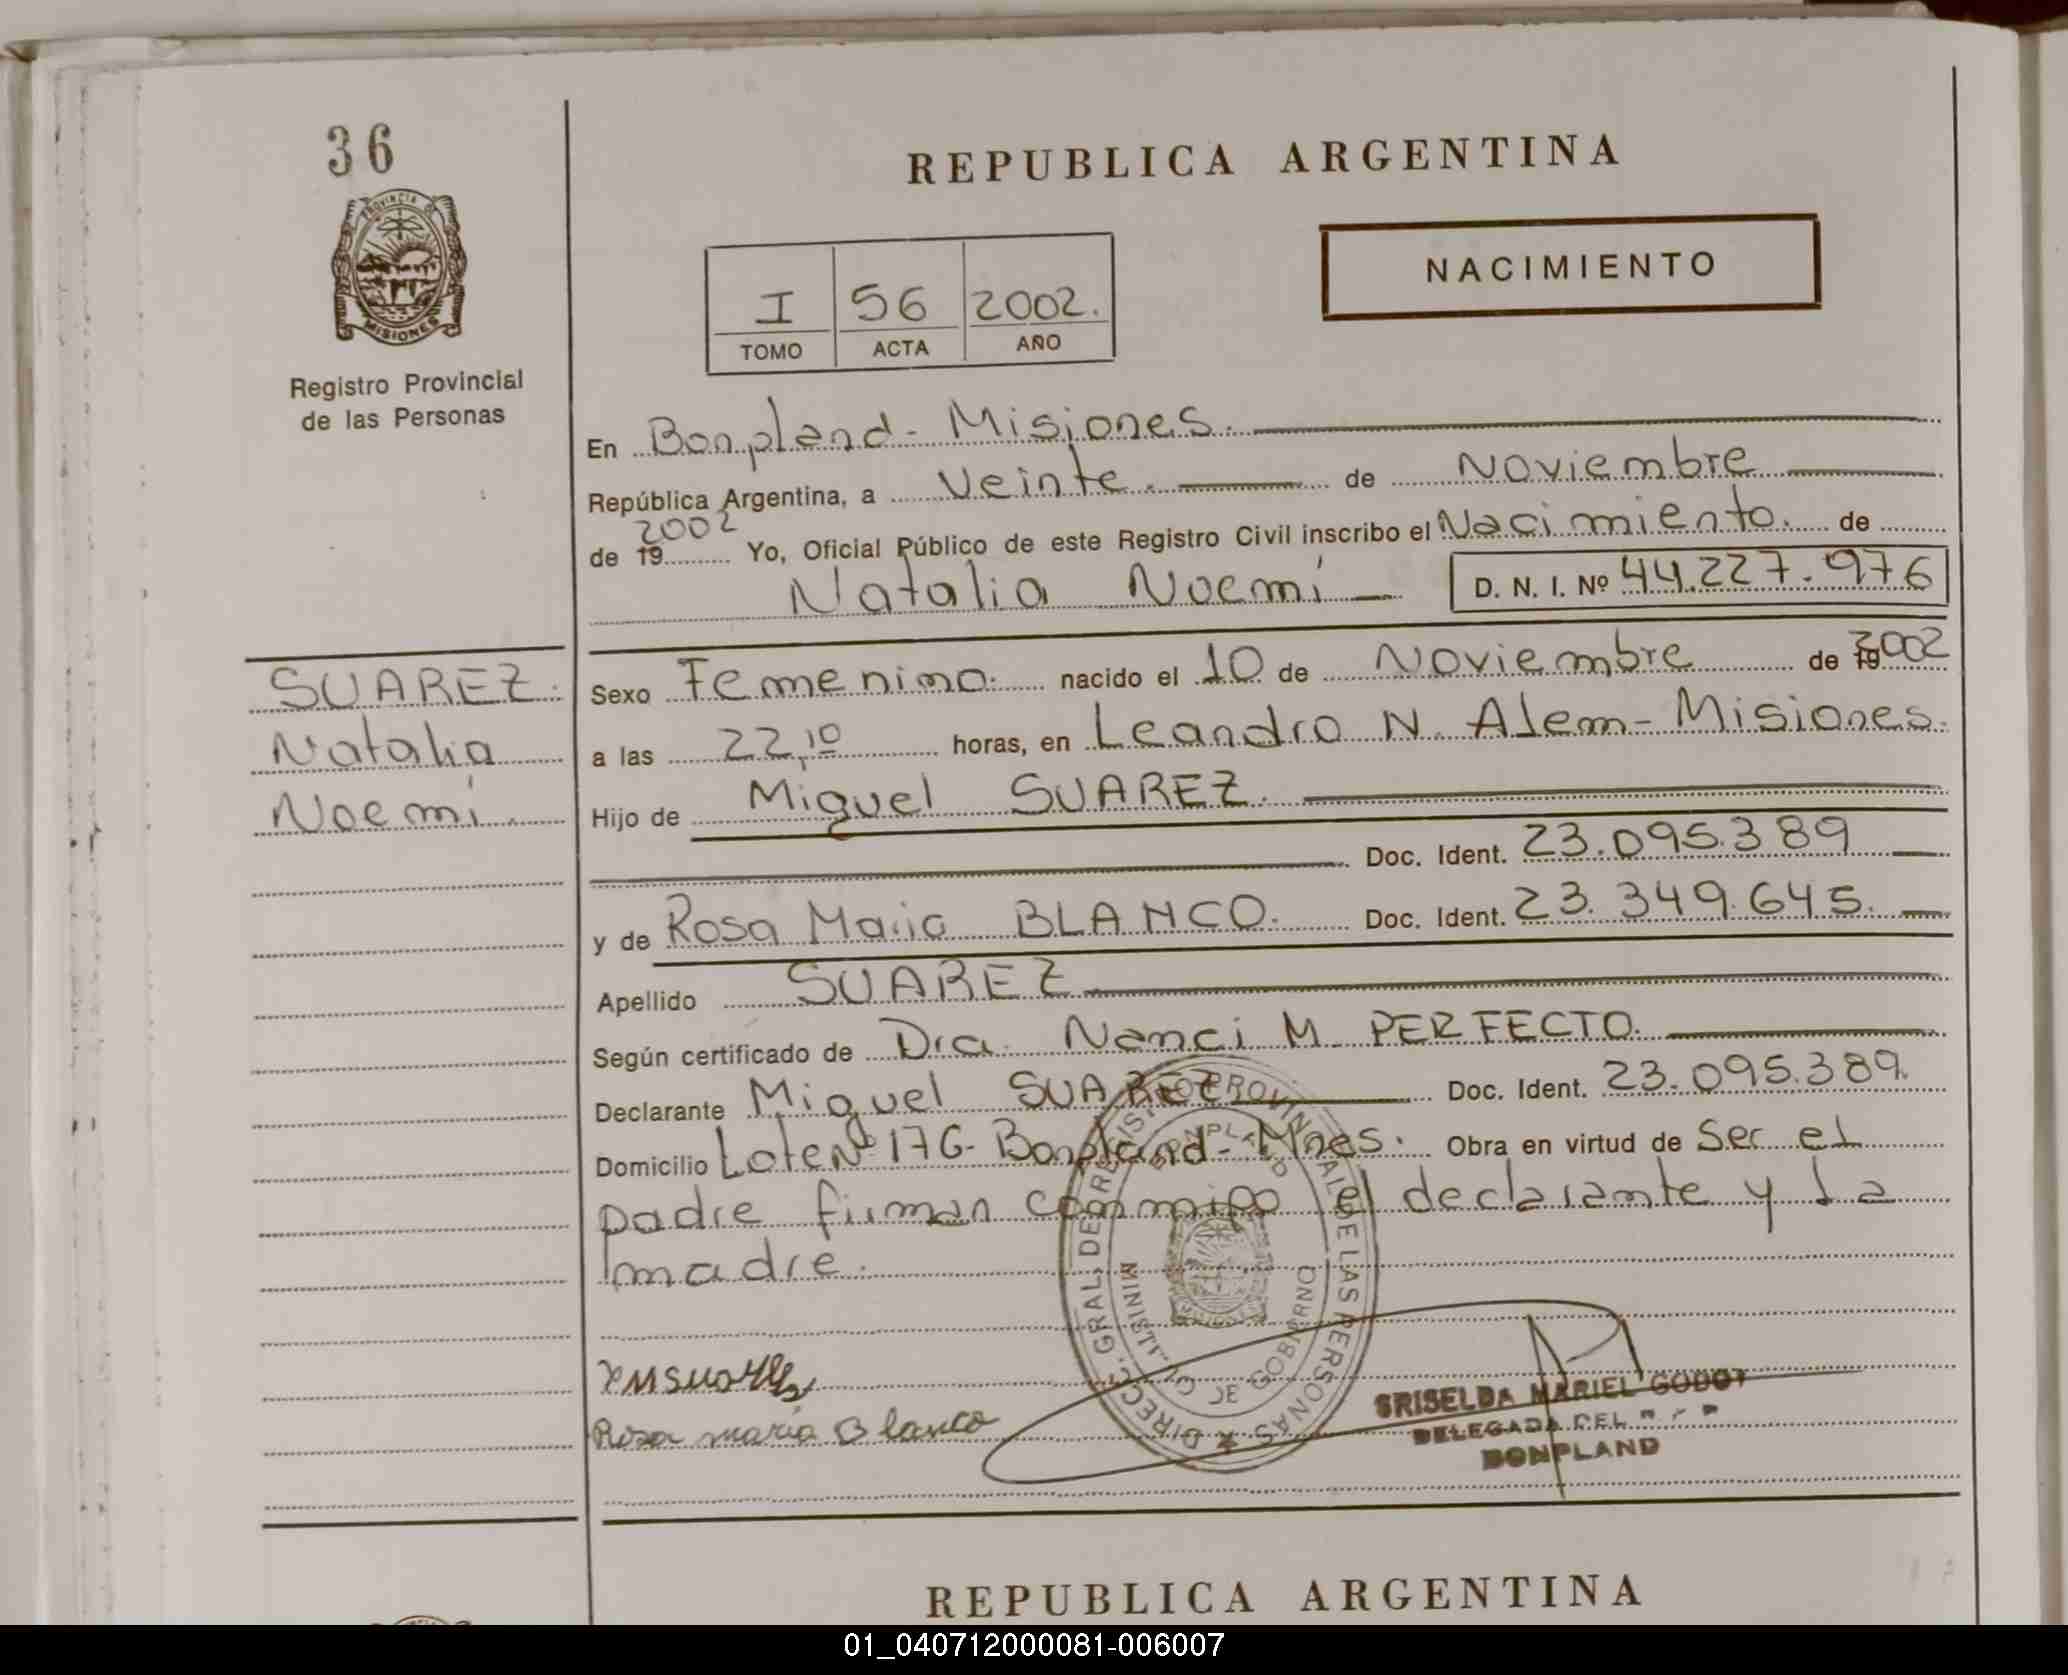 36
PROVINCIA DE
MISIONES
Registro Provincial
de las Personas
REPUBLICA ARGENTINA
NACIMIENTO
I 56 2002.
TOMO ACTA AÑO
En Bonpland - Misiones.
República Argentina, a Veinte. de Noviembre
de 19 2002 Yo, Oficial Público de este Registro Civil inscribo el Nacimiento. de
Natalia Noemí D. N. I. Nº 44.227.976
SUAREZ.
Natalia
Noemí.
Sexo Femenino. nacido el 10 de Noviembre de 19 2002
a las 22,10 horas, en Leandro N. Alem - Misiones.
Hijo de Miguel SUAREZ.
Doc. Ident. 23.095.389
y de Rosa Maria BLANCO. Doc. Ident. 23.349.645.
Apellido SUAREZ
Según certificado de Dra. Nanci M. PERFECTO.
Declarante Miguel SUAREZ Doc. Ident. 23.095.389.
Domicilio Lote Nº 176 - Bonpland - Mnes. Obra en virtud de Ser el
padre firman conmigo el declarante y la
madre.
DIRECC. GRAL. DE REGISTRO PROVINCIAL DE LAS PERSONAS
BONPLAND
DE GOBIERNO
Rosa maria Blanco
GRISELDA MARIEL GODOY
DELEGADA DEL
BONPLAND
REPUBLICA ARGENTINA
01_040712000081-006007